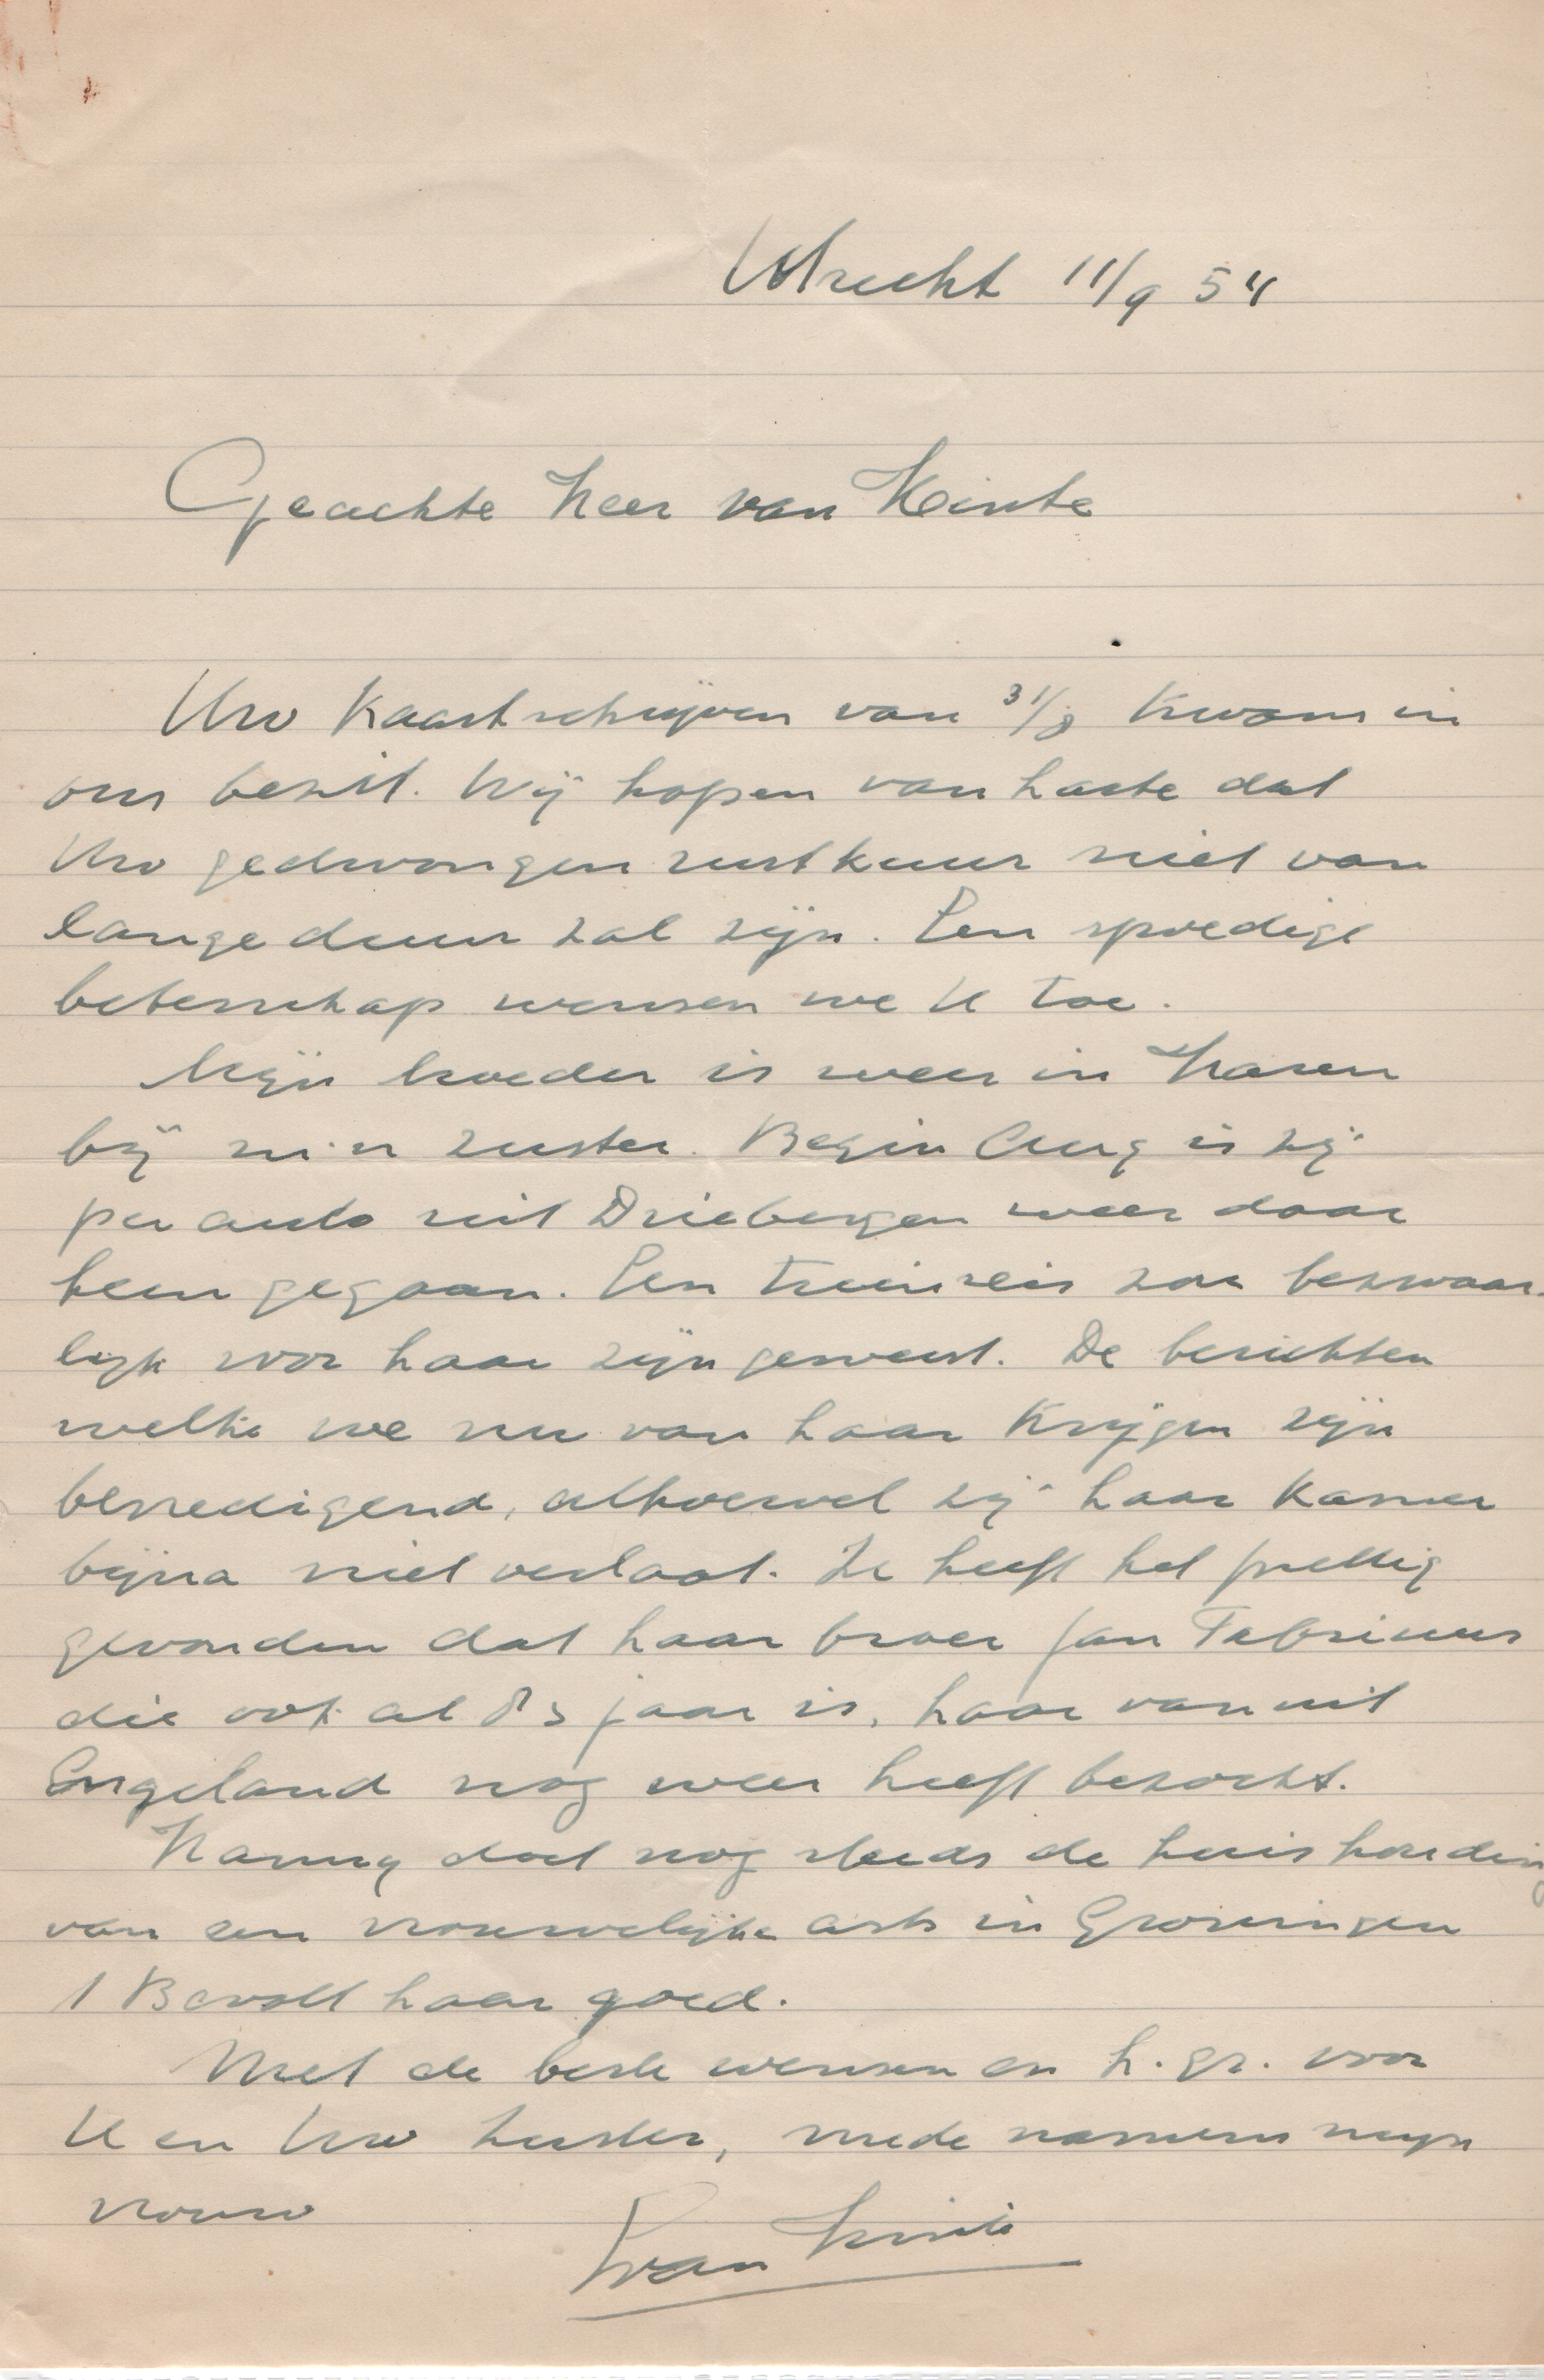 Utrecht 11/9 54
Geachte Heer van Hinte
Uw Kaartschrijven van 31/8 Kwam in
ons bezit. Wij hopen van harte dat
Uw gedwongen rustkuur niet van
lange duur zal zijn. Een spoedige
beterschap wensen we U toe.
Mijn moeder is weer in Haren
bij m'n zuster. Begin Aug is zij
per auto uit Driebergen weer daar
heen gegaan. Een treinreis zou bezwaar-
lijk voor haar zijn geweest. De berichten
welke we nu van haar Krijgen zijn
bevredigend, alhoewel zij haar Kamer
bijna niet verlaat. Ze heeft het prettig
gevonden dat haar broer Jan Fabricius
die ook al 83 jaar is, haar vanuit
Engeland nog weer heeft bezocht.
Hanny doet nog steeds de huishouding
van een vrouwelijke arts in Groningen
Bevalt haar goed.
Met de beste wensen en h. gr. voor
U en Uw zuster, mede namens mijn
vrouw
van Hinte